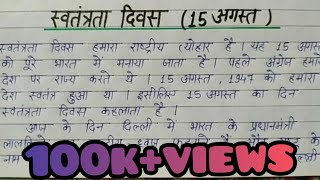 स्वतंत्रता दिवस (15 अगस्त)
स्वतंत्रता दिवस हमारा राष्ट्रीय त्योहार है। यह 15 अगस्त
को पूरे भारत में मनाया जाता है। पहले अंग्रेज हमारे
देश पर राज्य करते थे। 15 अगस्त, 1947 को हमारा
देश स्वतंत्र हुआ था। इसीलिए 15 अगस्त का दिन
स्वतंत्रता दिवस कहलाता है।
आज के दिन दिल्ली में भारत के प्रधानमंत्री
100K+VIEWS